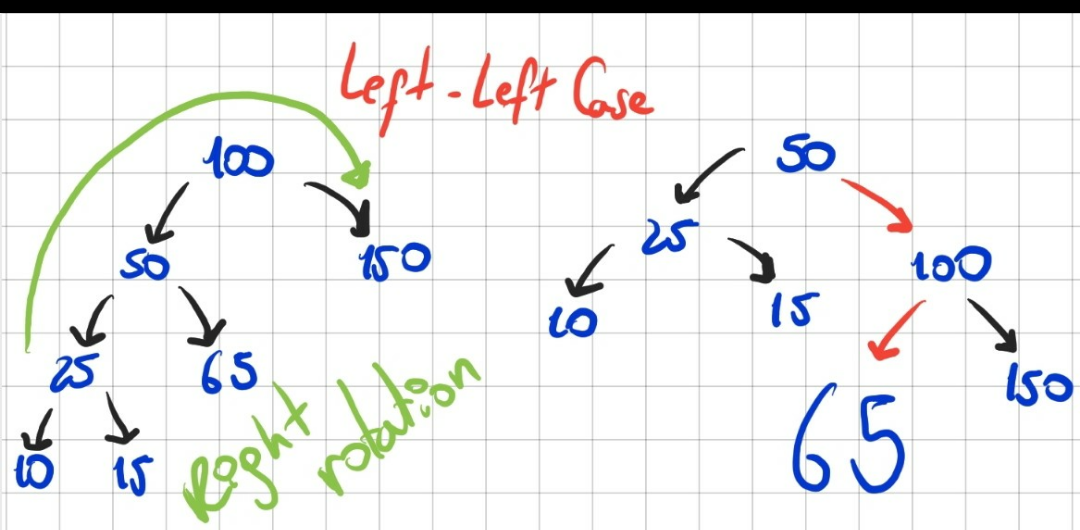 Left-Left Case
100
50
150
25
65
10
15
Reght rotation
50
25
100
10
15
65
150